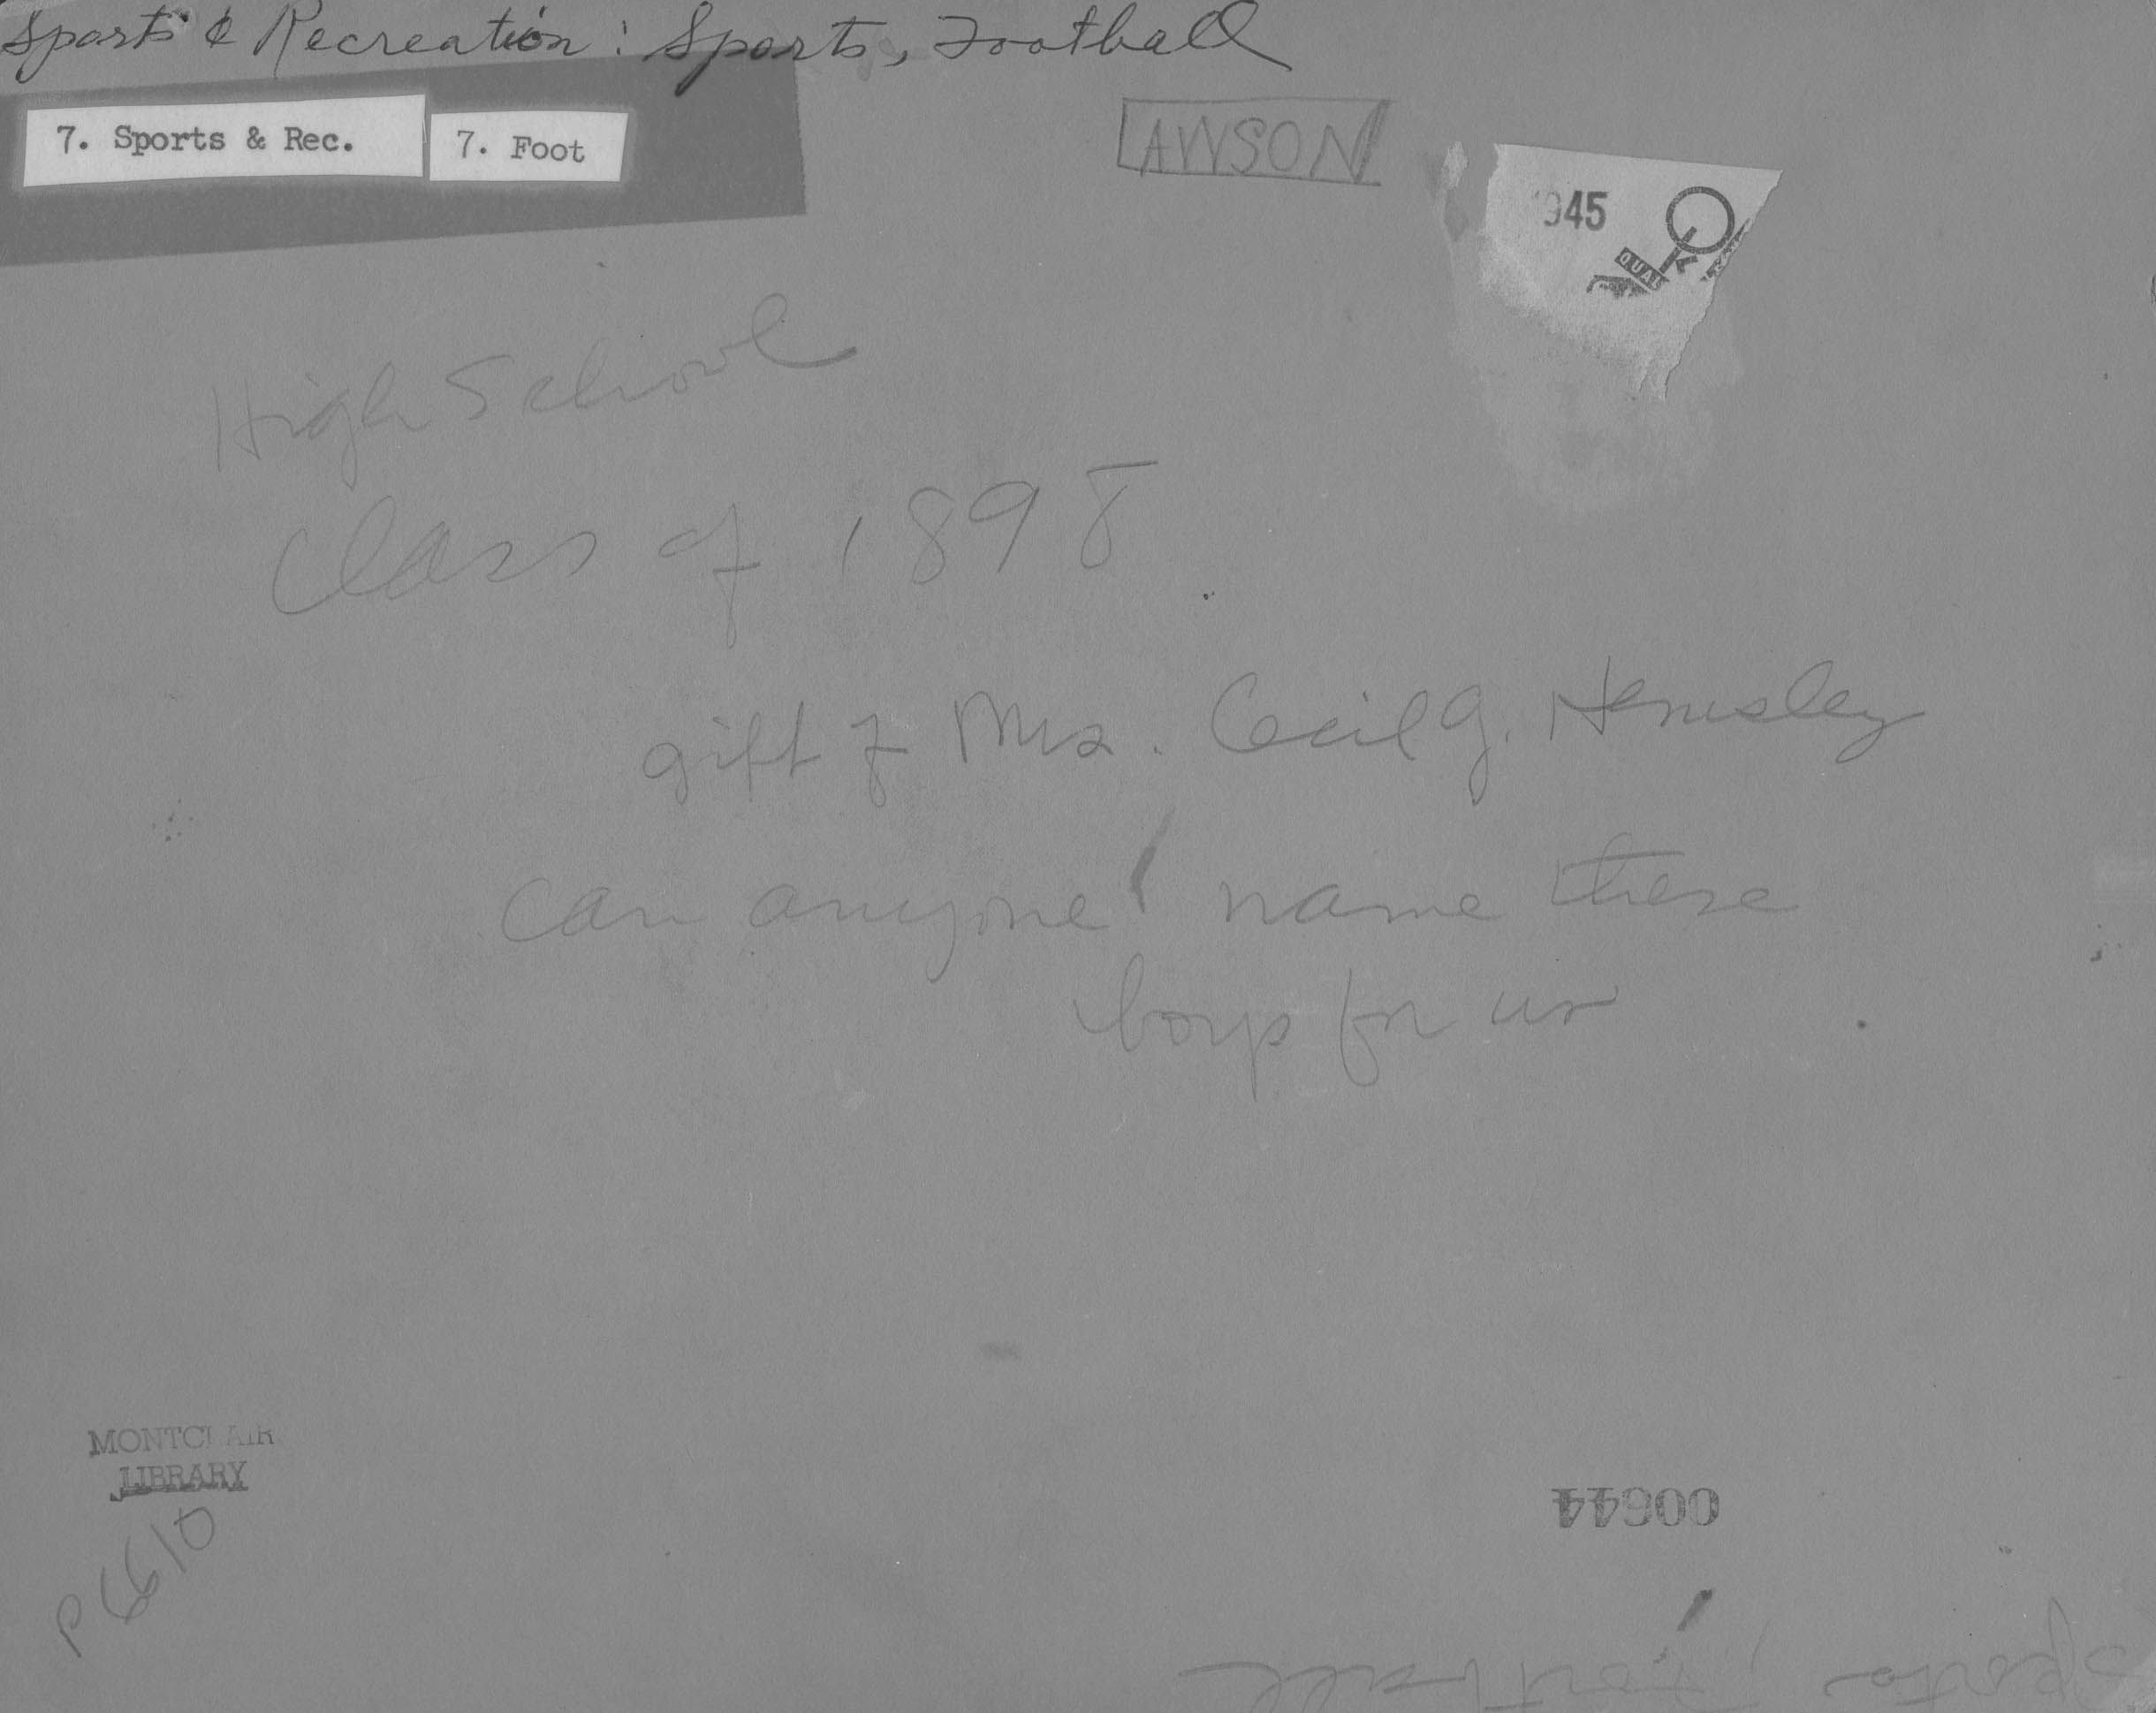 Sports & Recreation: Sports, Football
7. Sports & Rec. 7. Foot
LAWSON
945
QUAL
High School
Class of 1898
gift of Mrs. Cecil G. Hemsley
can anyone name these
boys for us
MONTCLAIR
LIBRARY
P6610
00644
Sports Football